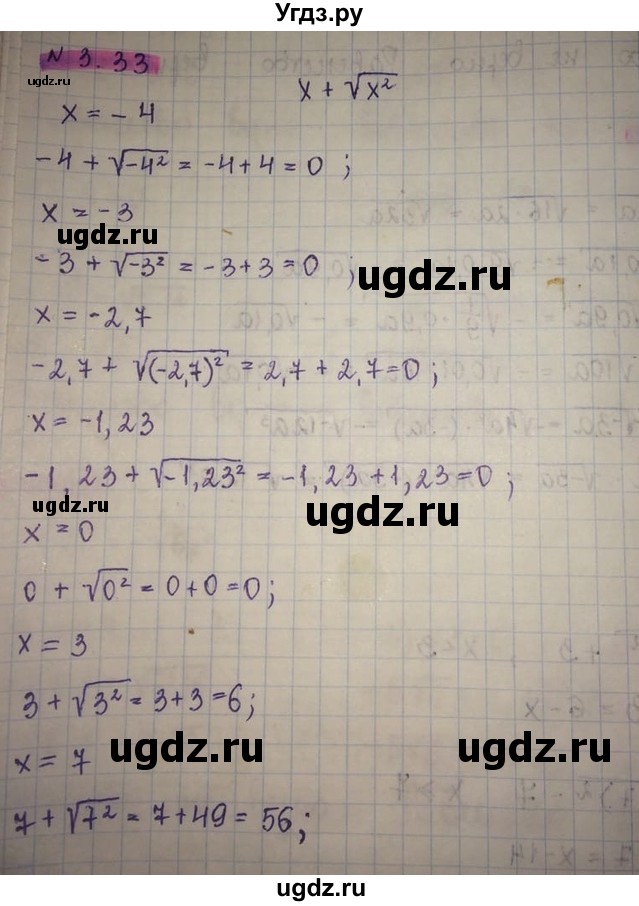 Угдз.ру
N 3.33
ugdz.ru
x + √x²
x = - 4
-4 + √-4² = -4+4 = 0 ;
x = -3
ugdz.ru
- 3 + √-3² = -3+3 = 0 ;
ugdz.ru
x = -2,7
-2,7 + √(-2,7)² = 2,7 + 2,7 = 0 ;
x = -1,23
-1,23 + √-1,23² = -1,23 + 1,23 = 0 ;
ugdz.ru
ugdz.ru
x = 0
0 + √0² = 0 + 0 = 0 ;
x = 3
ugdz.ru
3 + √3² = 3+3 = 6 ;
x = 7
ugdz.ru
7 + √7² = 7 + 49 = 56 ;
ugdz.ru